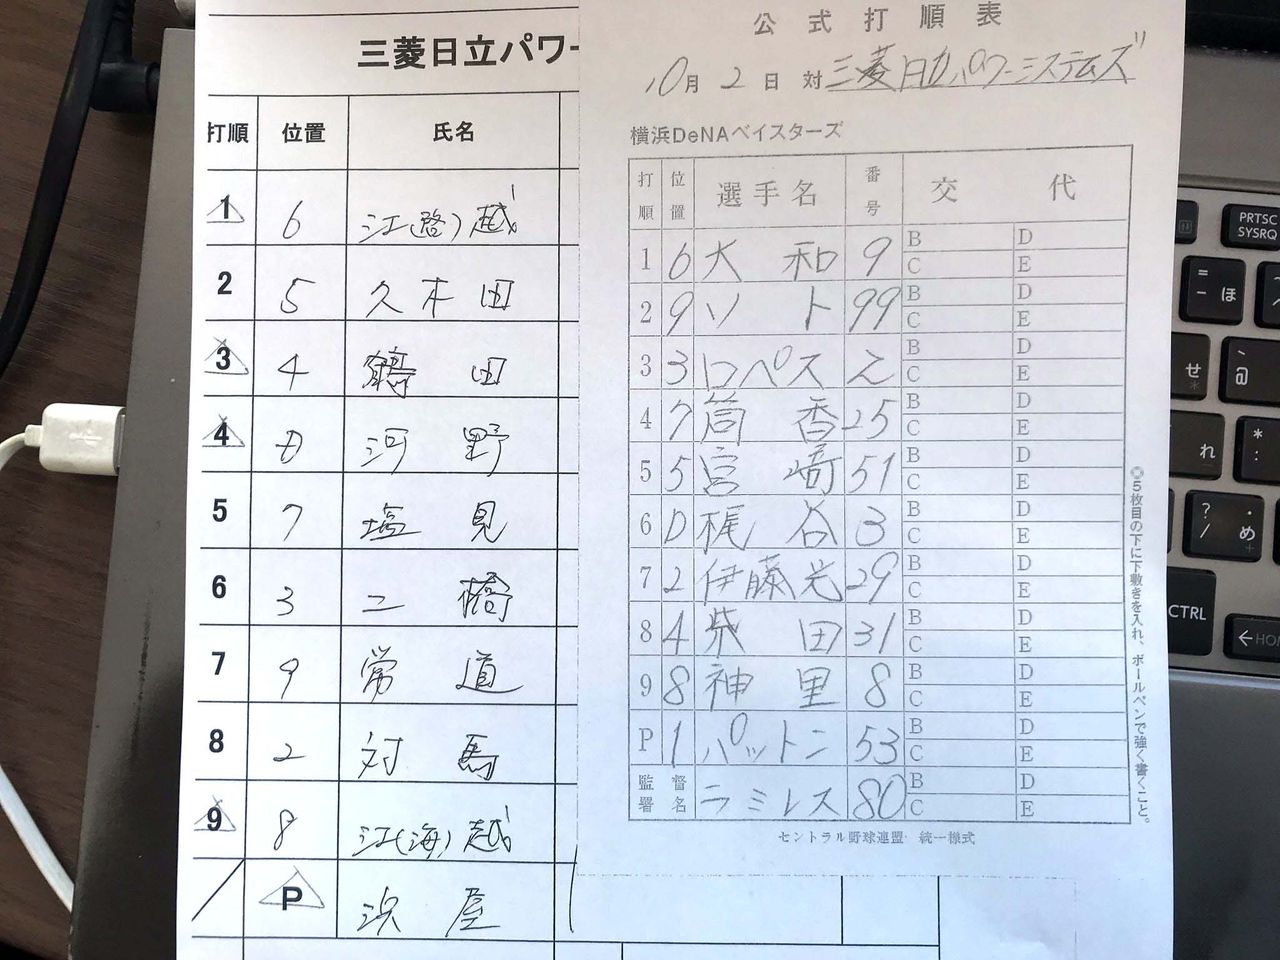 三菱日立パワー
打順 位置 氏名
1 6 江(路)越
2 5 久木田
3 4 鶴田
4 D 河野
5 7 塩見
6 3 二橋
7 9 常道
8 2 対馬
9 8 江(海)越
P 浜屋
公式打順表
10月2日 対 三菱日立パワーシステムズ
横浜DeNAベイスターズ
打順 位置 選手名 番号 交代
1 6 大和 9 B D
C E
2 9 ソト 99 B D
C E
3 3 ロペス 2 B D
C E
4 7 筒香 25 B D
C E
5 5 宮﨑 51 B D
C E
6 D 梶谷 3 B D
C E
7 2 伊藤光 29 B D
C E
8 4 柴田 31 B D
C E
9 8 神里 8 B D
C E
P 1 パットン 53 B D
C E
監督署名 ラミレス 80 B D
C E
◎5枚目の下に下敷きを入れ、ボールペンで強く書くこと。
セントラル野球連盟 統一様式
PRTSC
SYSRQ
= - ほ
せ @
れ * :
? / ・ め
CTRL
← HO